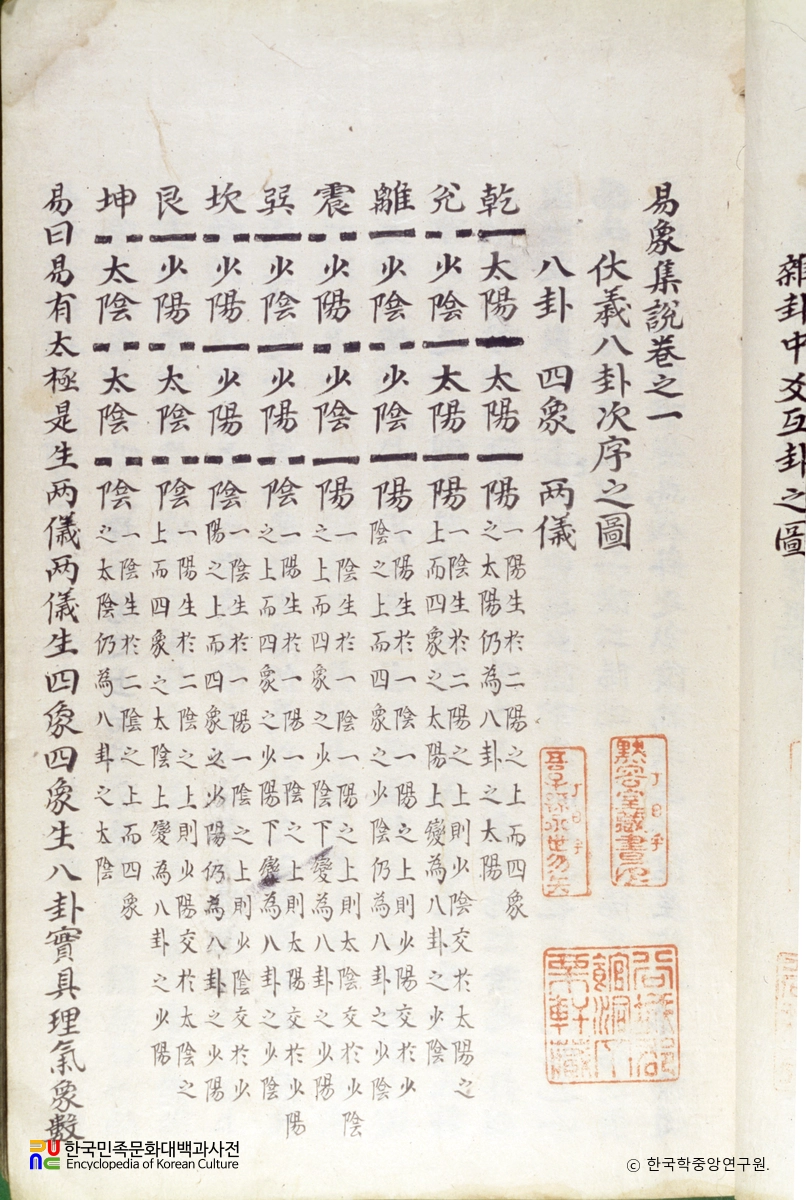 雜卦中爻互卦之圖
易象集說卷之一
伏羲八卦次序之圖
八卦 四象 两儀
乾 太陽 太陽 陽 一陽生於二陽之上而四象
之太陽仍為八卦之太陽
兌 少陰 太陽 陽 一陰生於二陽之上則少陰交於太陽之
上而四象之太陽上變為八卦之少陰
離 少陰 少陰 陽 一陽生於一陰一陽之上則少陽交於少
陰之上而四象之少陰仍為八卦之少陰
震 少陽 少陰 陽 一陰生於一陰一陽之上則太陰交於少陰
之上而四象之少陰下變為八卦之少陽
巽 少陰 少陽 陰 一陽生於一陽一陰之上則太陽交於少陽
之上而四象之少陽下變為八卦之少陰
坎 少陽 少陽 陰 一陰生於一陽一陰之上則少陰交於少
陽之上而四象之少陽仍為八卦之少陽
艮 少陽 太陰 陰 一陽生於二陰之上則少陽交於太陰之
上而四象之太陰上變為八卦之少陽
坤 太陰 太陰 陰 一陰生於二陰之上而四象
之太陰仍為八卦之太陰
易曰易有太極是生两儀两儀生四象四象生八卦實具理氣象數
한국민족문화대백과사전
Encyclopedia of Korean Culture
ⓒ 한국학중앙연구원.